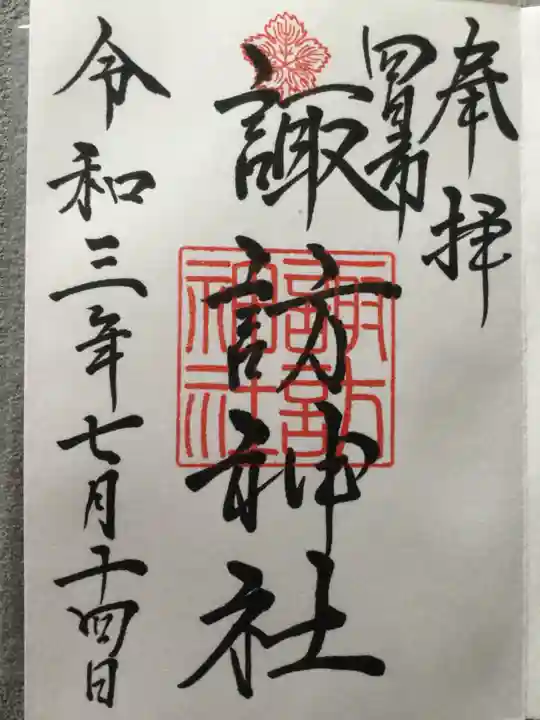 奉拝
四日市
諏訪神社
諏訪
神社
令和三年七月十四日